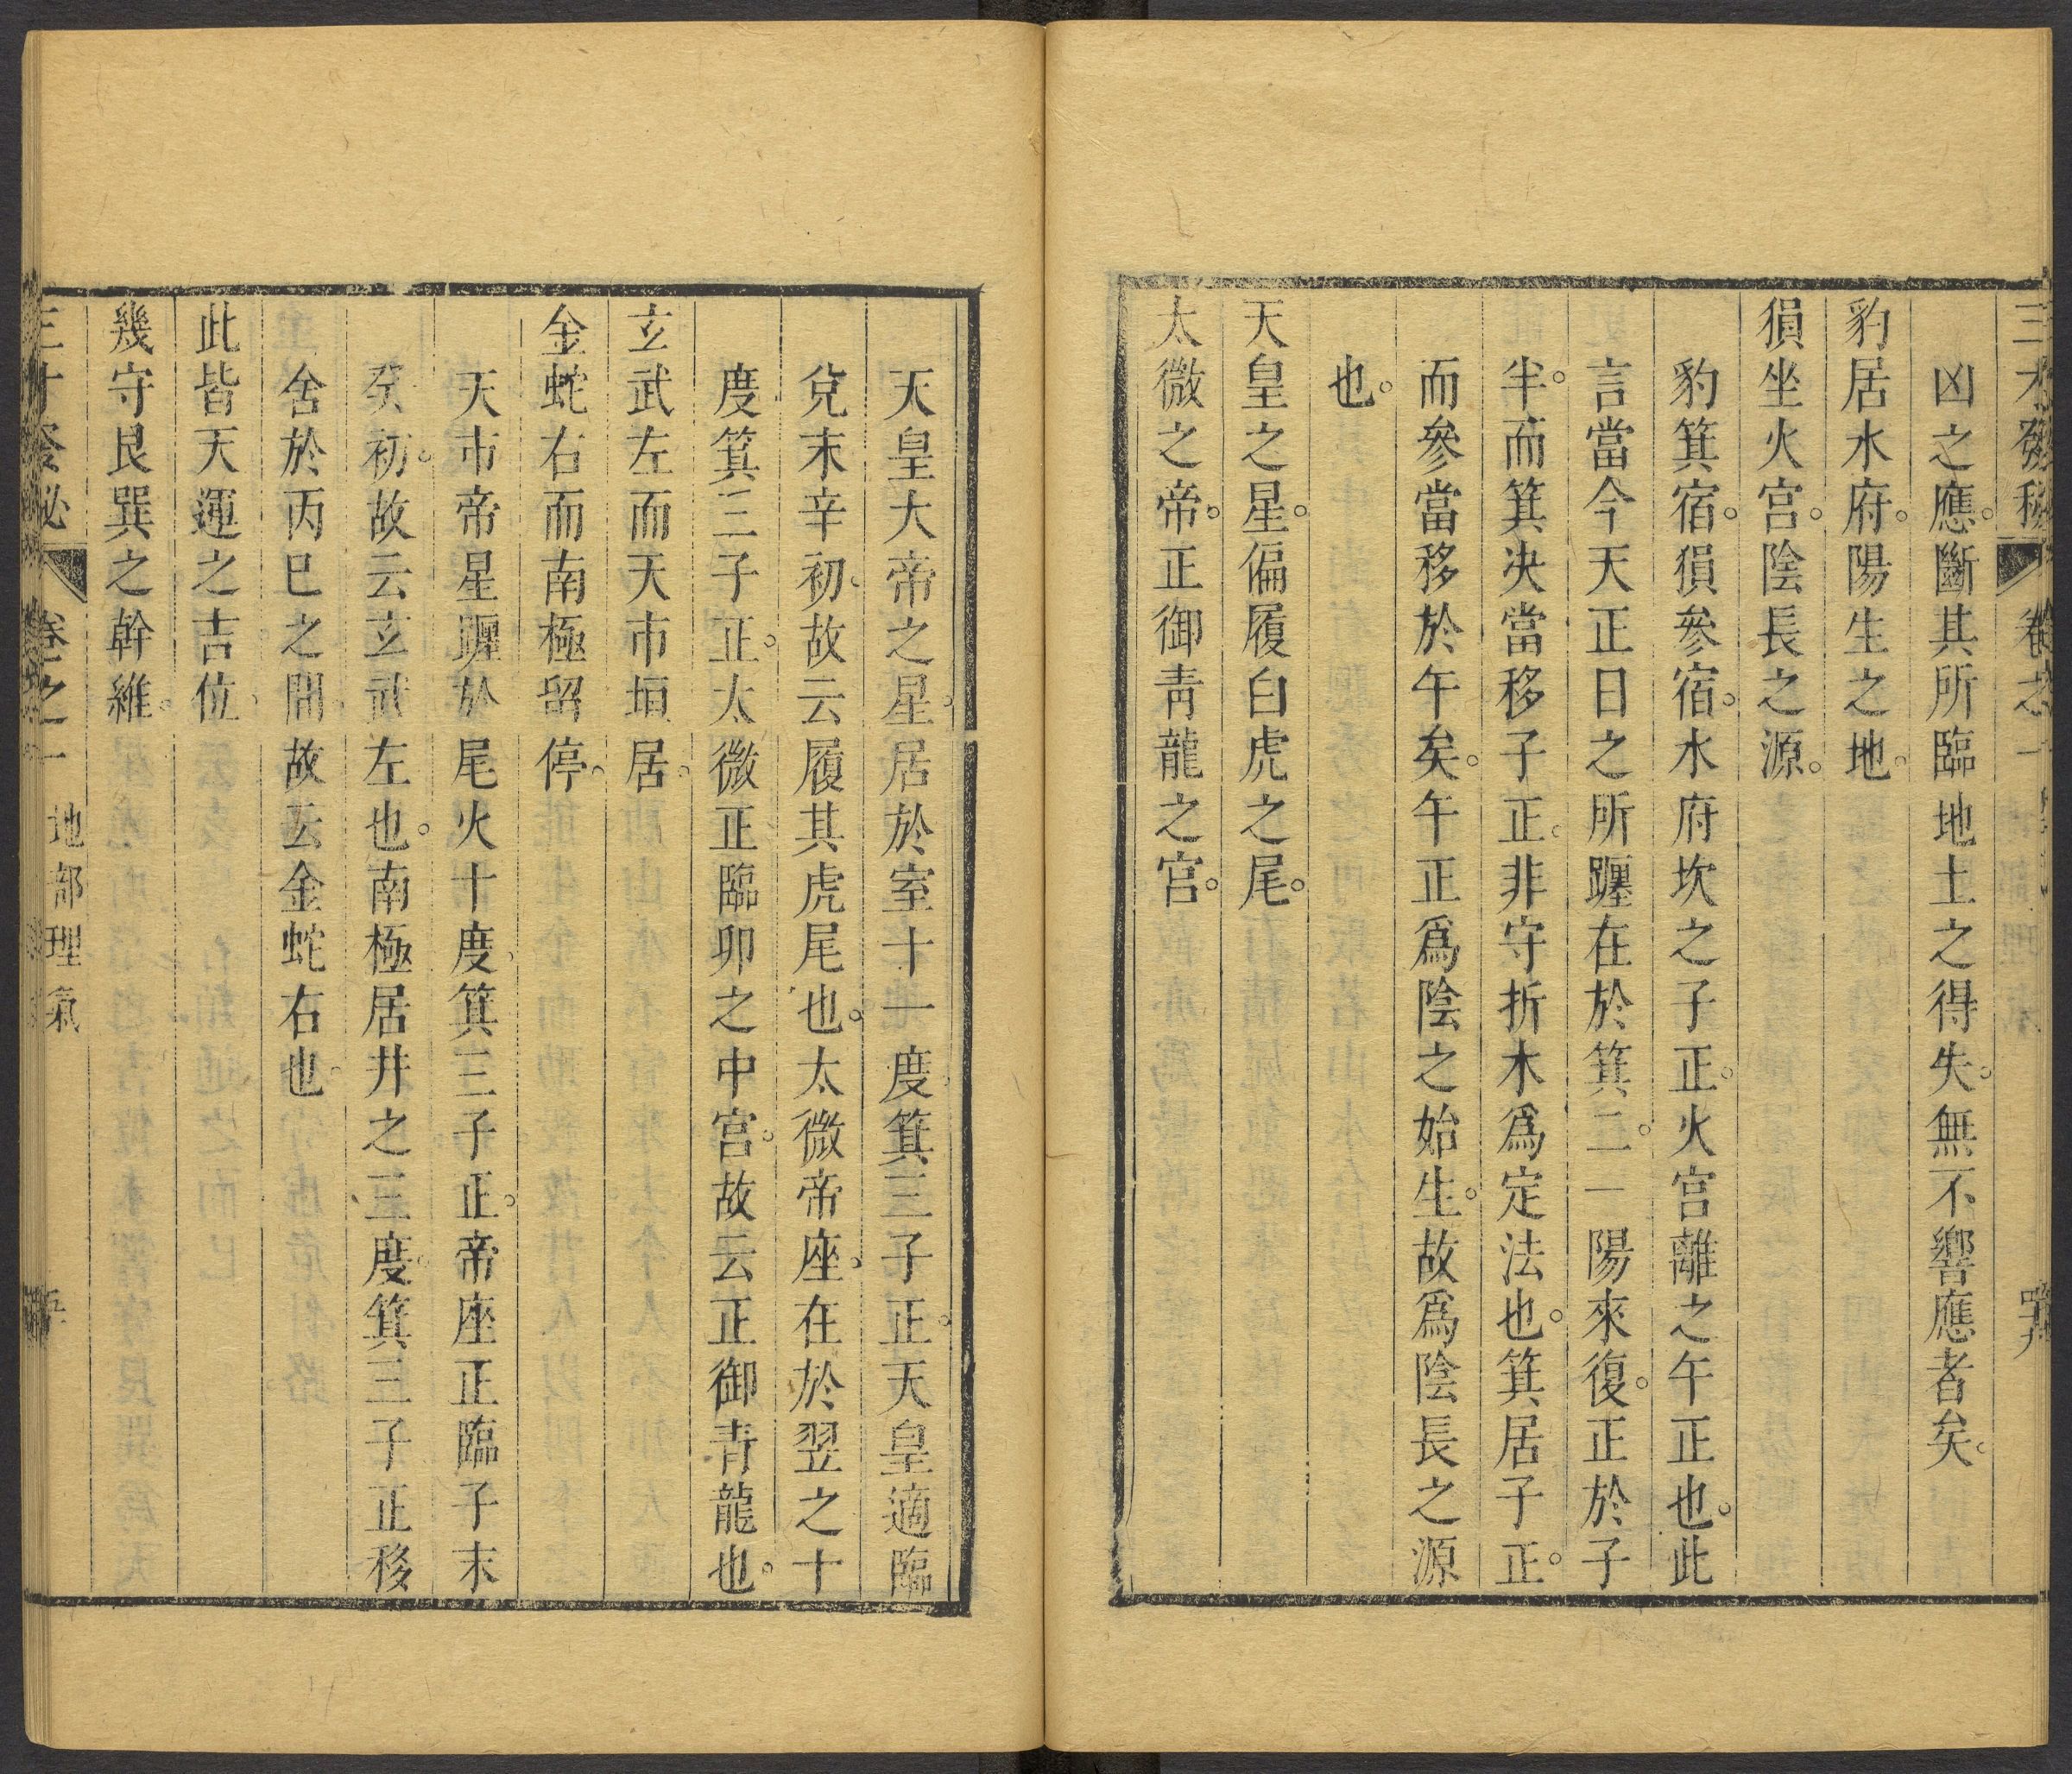 三才發秘 卷之一
凶之應。斷其所臨地土之得失。無不響應者矣。
豹居水府。陽生之地。
狽坐火宮。陰長之源。
豹箕宿。狽參宿。水府坎之子正。火宮離之午正也。此
言當今天正日之所躔在於箕二。一陽來復。正於子
半。而箕決當移子正。非守折木爲定法也。箕居子正。
而參當移於午矣。午正爲陰之始生。故爲陰長之源
也。
天皇之星。偏履白虎之尾。
太微之帝。正御靑龍之宮。
天皇大帝之星。居於室十一度。箕三子正。天皇適臨
兌末辛初。故云履其虎尾也。太微帝座。在於翌之十
度。箕三子正。太微正臨卯之中宮。故云正御青龍也。
玄武左而天市垣居。
金蛇右而南極畱停。
天市帝星躔於尾火十度。箕三子正。帝座正臨子末
癸初。故云玄武左也。南極居井之三度。箕三子正移
舍於丙巳之間。故云金蛇右也。
此皆天運之吉位。
幾守艮巽之幹維。
三才發秘 卷之一 地部理氣